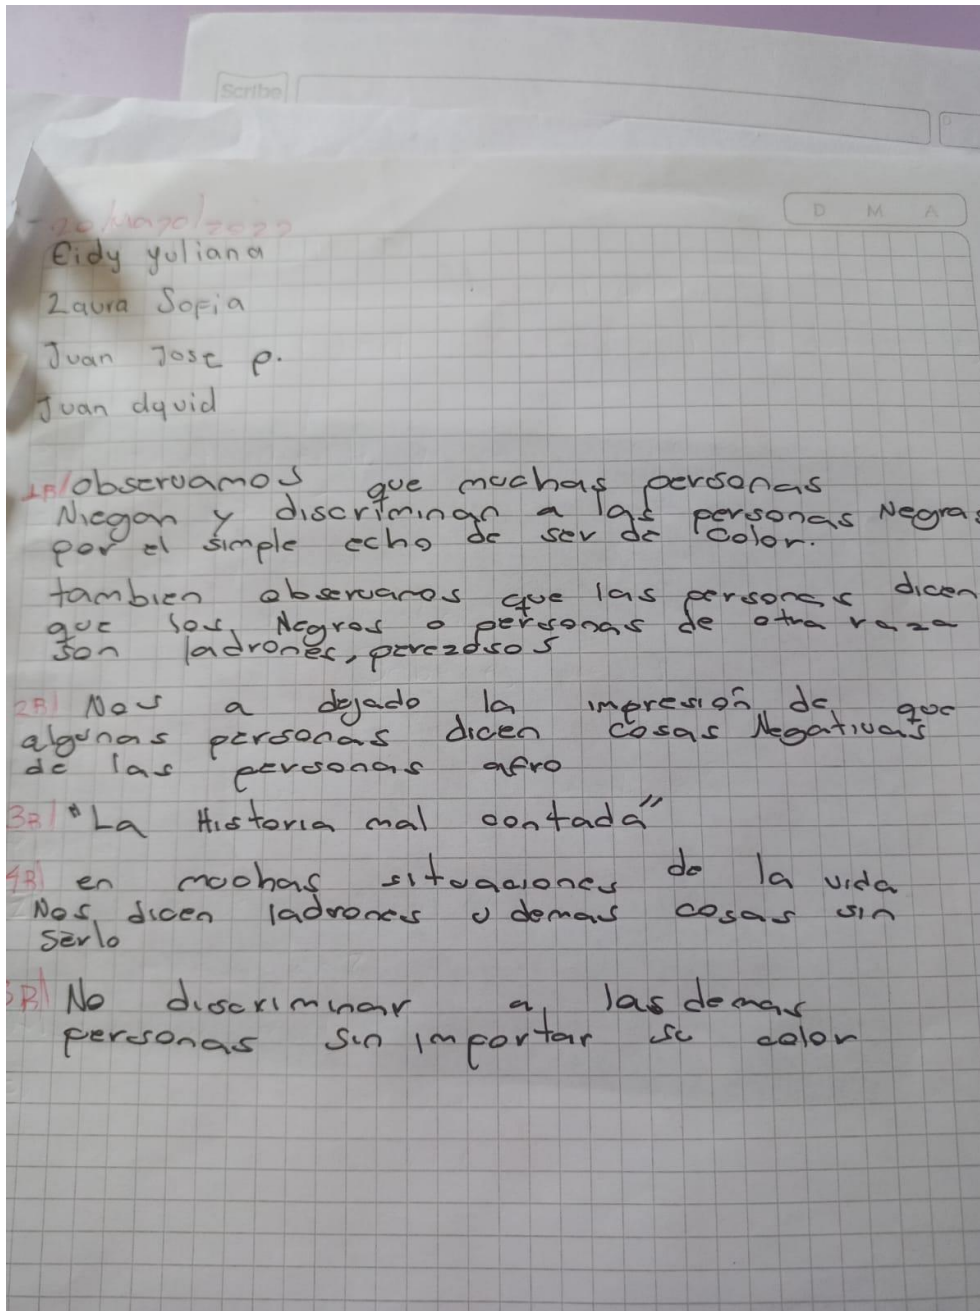 Scribe
D M A
20/Mayo/2022
Eidy yuliana
Laura Sofia
Juan Jose p.
Juan david
1R/ observamos que muchas personas
Niegan y discriminan a las personas Negras
por el simple echo de ser de color.
tambien observamos que las personas dicen
que los Negros o personas de otra raza
son ladrones, perezosos
2R/ Nos a dejado la impresión de que
algunas personas dicen cosas Negativas
de las personas afro
3R/ "La Historia mal contada"
4R/ en muchas situaciones de la vida
Nos dicen ladrones u demas cosas sin
serlo
5R/ No discriminar a las demas
personas sin importar su color